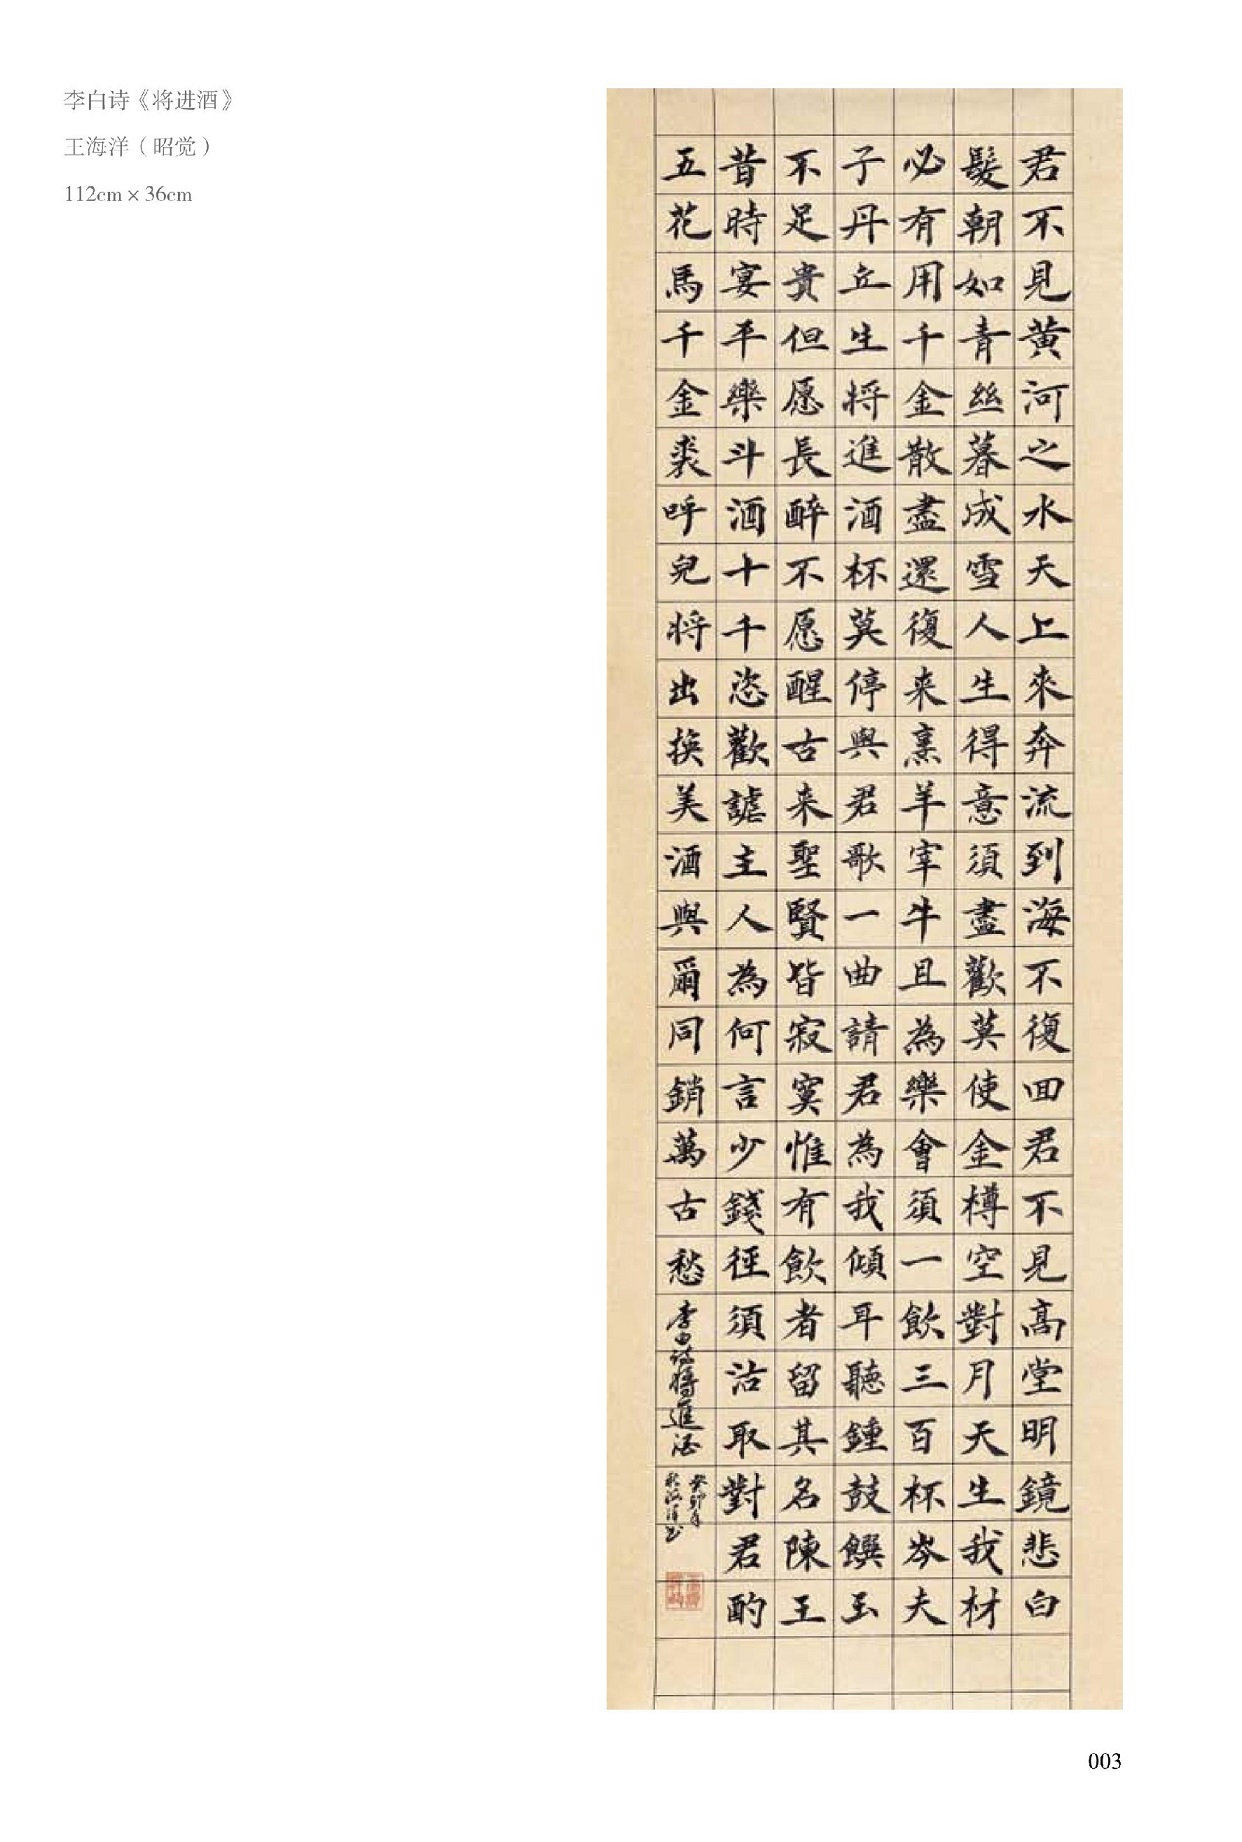 李白诗《将进酒》
王海洋（昭觉）
112cm × 36cm
君不見黄河之水天上來奔流到海不復回君不見高堂明鏡悲白
髮朝如青絲暮成雪人生得意須盡歡莫使金樽空對月天生我材
必有用千金散盡還復来烹羊宰牛且為樂會須一飲三百杯岑夫
子丹丘生将進酒杯莫停與君歌一曲請君為我傾耳聽鍾鼓饌玉
不足貴但愿長醉不愿醒古来聖賢皆寂寞惟有飲者留其名陳王
昔時宴平樂斗酒十千恣歡謔主人為何言少錢徑須沽取對君酌
五花馬千金裘呼兒将出换美酒與爾同銷萬古愁李白诗将進酒
癸卯年
秋海洋书
003